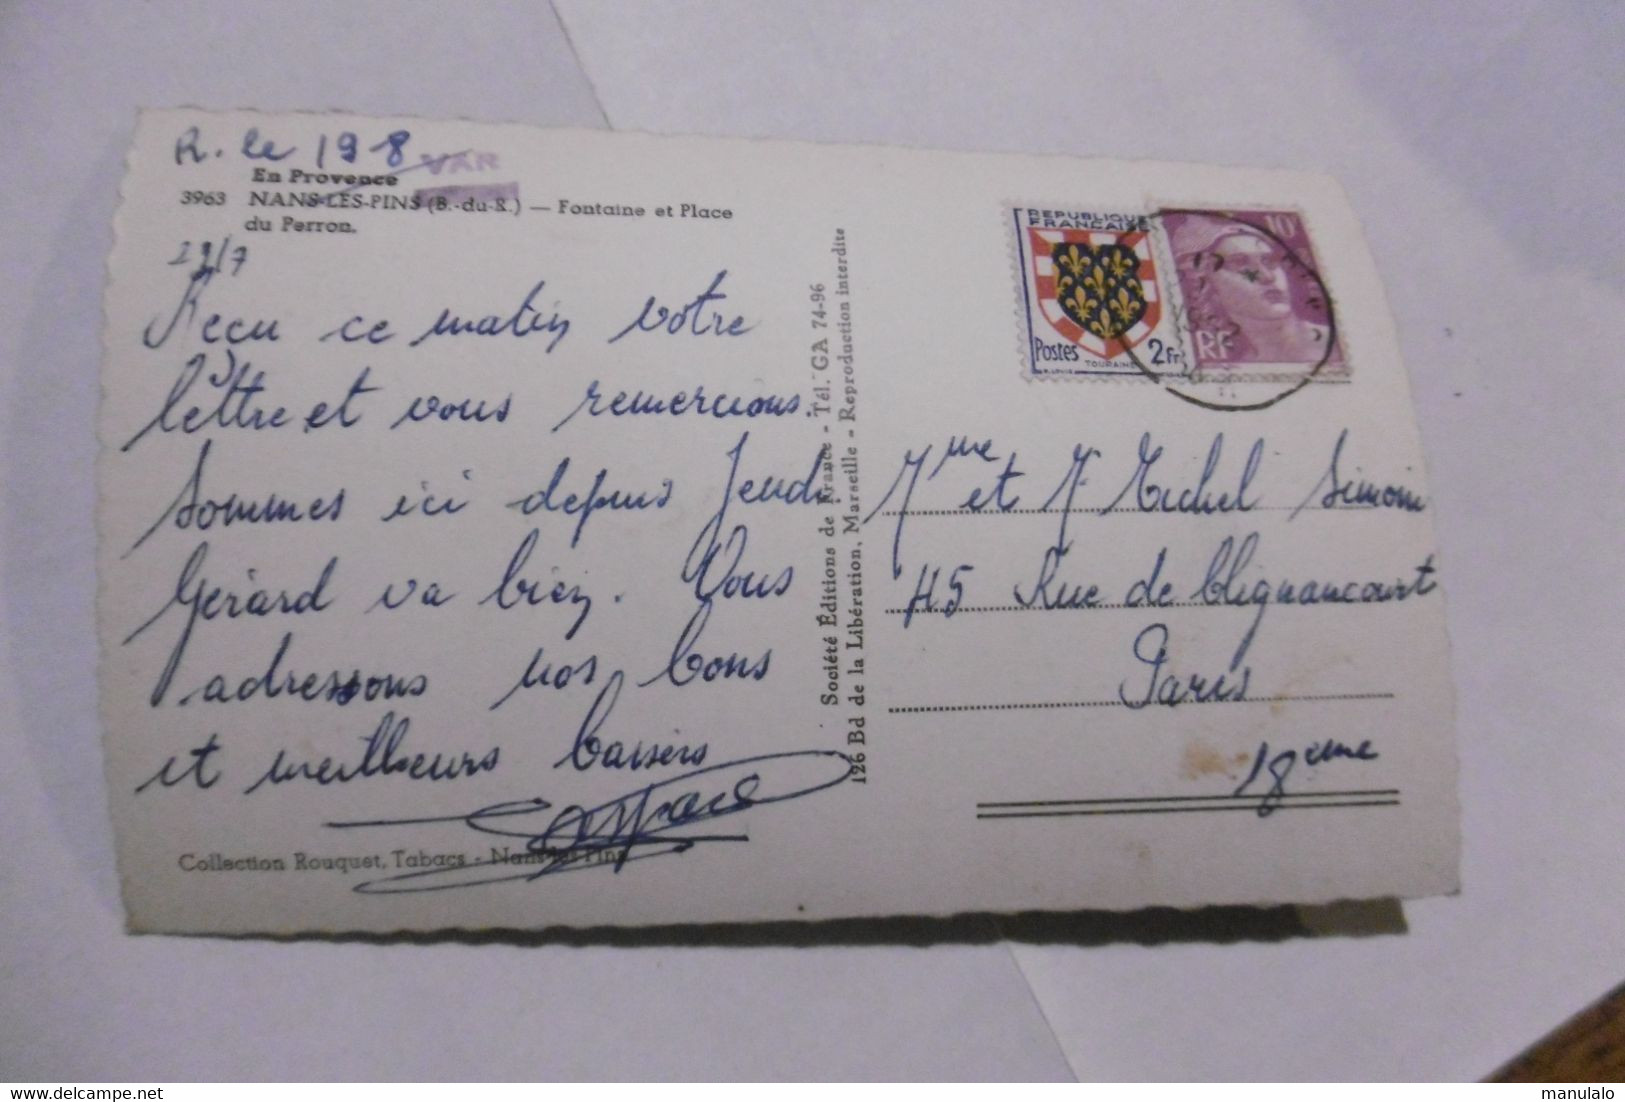 R. le 1981
VAR
En Provence
3963 NANS-LES-PINS (B.-du-R.) — Fontaine et Place
du Perron.
29/7
Reçu ce matin votre
lettre et vous remercions.
Sommes ici depuis Jeudi
Gérard va bien. Vous
adressons nos bons
et meilleurs baisers
Collection Rouquet, Tabacs - Nans-les-Pins
Société Éditions de France - Tél. GA 74-96
126 Bd de la Libération, Marseille - Reproduction interdite
REPUBLIQUE
FRANCAISE
Postes 2Fr
TOURAINE
10F
RF
Mme et M Michel Simoni
45 Rue de Clignancourt
Paris
18eme
manulalo